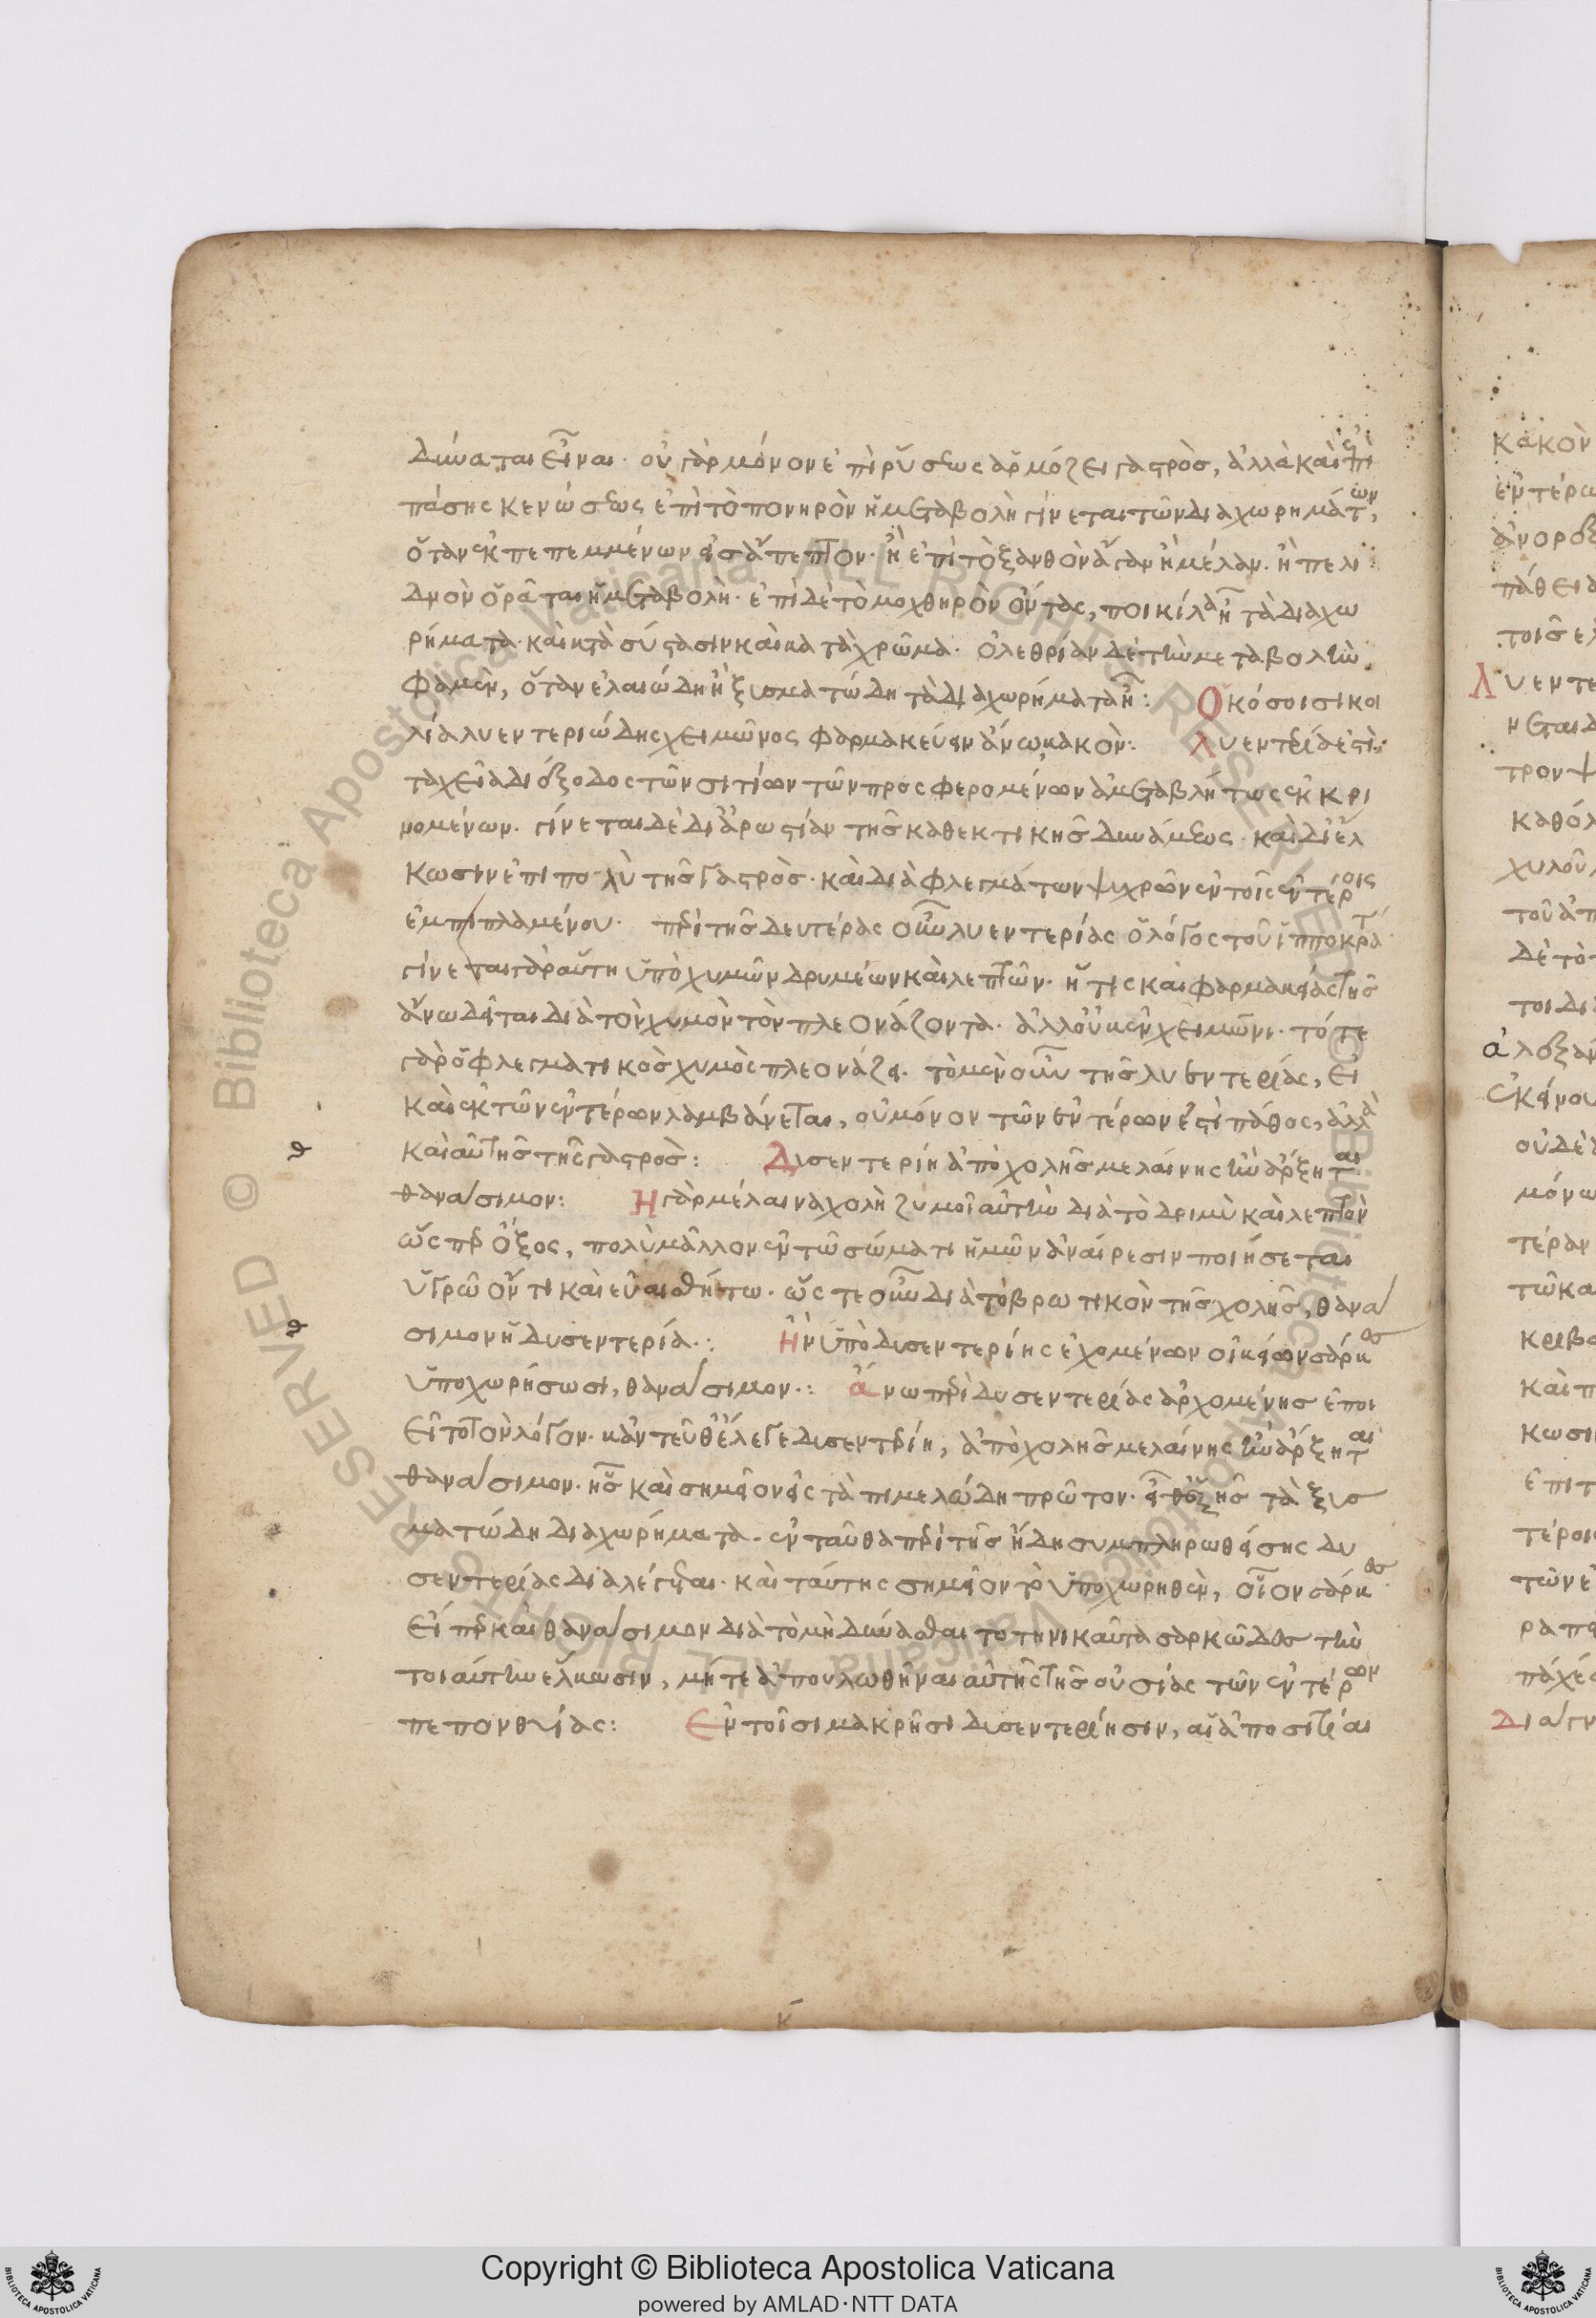 δύναται εἶναι. οὐ γὰρ μόνον ἐπὶ ῥύσεως ἁρμόζει γαστρὸς, ἀλλὰ καὶ ἐπὶ
πάσης κενώσεως ἐπὶ τὸ πονηρὸν ἡ μεταβολὴ γίνεται τῶν διαχωρημάτων,
ὅταν ἐκ πεπεμμένων εἰς ἄπεπτον. ἢ ἐπὶ τὸ ξανθὸν ἄγαν ἢ μέλαν. ἢ πελι
δνὸν ὁρᾶται ἡ μεταβολὴ. ἐπὶ δὲ τὸ μοχθηρὸν ὄντας, ποικίλα ἦ τὰ διαχω
ρήματα καὶ κατὰ σύστασιν καὶ κατὰ χρῶμα. ὀλεθρίαν δὲ τὴν μεταβολὴν
φαμὲν, ὅταν ἐλαιώδη ἢ ξυσματώδη τὰ διαχωρήματα ἦ: Ὁκόσοισι κοι
λίαι λυεντεριώδης χειμῶνος φαρμακεύειν ἄνω κακὸν: Λυεντερία ἐστὶ
ταχεῖα διέξοδος τῶν σιτίων τῶν προσφερομένων ἀμεταβλήτως ἐκκρι
νομένων. γίνεται δὲ δι' ἀρρωστίαν τῆς καθεκτικῆς δυνάμεως. καὶ δι' ἕλ
κωσιν ἐπιπολὺ τῆς γαστρὸς. καὶ διὰ φλεγμάτων ψυχρῶν ἐν τοῖς ἐντέροις
ἐμπιπλαμένου. περὶ τῆς δευτέρας οὖν λυεντερίας ὁ λόγος τοῦ ἱπποκράτ
γίνεται γὰρ αὕτη ὑπὸ χυμῶν δρυμέων καὶ λεπτῶν. ἥτις καὶ φαρμακείας τῆς
ἄνω δεῖται διὰ τὸν χυμὸν τὸν πλεονάζοντα. ἀλλ' οὐκ ἐν χειμῶνι. τότε
γὰρ ὁ φλεγματικὸς χυμὸς πλεονάζει. τὸ μὲν οὖν τῆς λυεντερίας, εἰ
καὶ ἐκ τῶν ἐντέρων λαμβάνεται, οὐ μόνον τῶν ἐντέρων ἐστὶ πάθος, ἀλλὰ
καὶ αὐτῆς τῆς γαστρὸς: Δισεντερίη ἀπὸ χολῆς μελαίνης ἢν ἄρξηται
θανάσιμον: Ἡ γὰρ μέλαινα χολὴ ζυμοῖ αὐτὴν διὰ τὸ δριμὺ καὶ λεπτὸν
ὥσπερ ὄξος, πολὺ μᾶλλον ἐν τῶ σώματι ἡμῶν ἀναίρεσιν ποιήσεται
ὑγρῶ ὄντι καὶ εὐαισθήτω. ὥστε οὖν διὰ τὸ βρωτικὸν τῆς χολῆς, θανα
σιμον ἡ δυσεντερία.: Ἢν ὑπὸ δισεντερίης ἐχομένων οἱκεῖον σάρκες
ὑποχωρήσωσι, θανάσιμον.: ἄνω περὶ δυσεντερίας ἀρχομένης ἐποι
εῖτο τὸν λόγον. κἀντεῦθ ἔλεγε δισεντερίη, ἀπὸ χολῆς μελαίνης ἢν ἄρξηται
θανάσιμον. ἧς καὶ σημεῖον εἰς τὰ πιμελώδη πρῶτον. εἶθ' ἑξῆς τὰ ξυσ
ματώδη διαχωρήματα. ἐνταῦθα περὶ τῆς ἤδη συμπληρωθείσης δυ
σεντερίας διαλέγεται. καὶ ταύτης σημεῖον τὸ ὑποχωρηθὲν, οἷον σάρκες
εἴπερ καὶ θανάσιμον διὰ τὸ μὴ δύνασθαι τὸ τηνικαῦτα σαρκῶδες τὴν
τοιαύτην ἕλκωσιν, μήτε ἀπουλωθῆναι αὐτῆς τῆς οὐσίας τῶν ἐντέρων
πεπονθυίας: Ἐν τοῖσι μακρῆσι δισεντερίησιν, αἱ ἀποσιτίαι
κ
κακὸν
ἐντέρω
πάθει
Λυεντε
τρον ψ
καθόλ
χυλοῦ
τοῦ ἀπ
δὲ τὸ
τοι δι
οὐδὲ
μόνω
τέραν
τῶ κα
καὶ π
κωσι
ἐπι τ
τέροι
τῶν ἐ
Copyright © Biblioteca Apostolica Vaticana
powered by AMLAD·NTT DATA